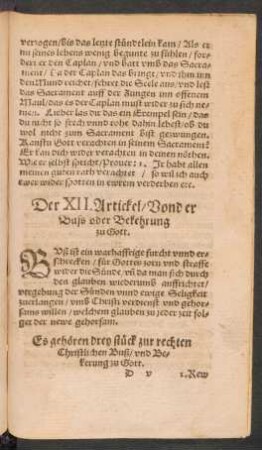 verzogen/bis das letzte stündtlein kam/Als er
nu seines lebens wenig begunte zu fühlen/ for-
dert er den Caplan/vnd batt vmb das Sacra-
ment/ Da der Caplan das bringt/vnd ihm inn
den Mund reichet/feret die Seele aus/vnd lest
das Sacrament auff der Zungen im offenem
Maul/das es der Caplan must wider zu sich ne-
men. Lieber las dir das ein Exempel sein/das
du nicht so frech vnnd rohe dahin lebest/ob du
wol nicht zum Sacrament bist gezwungen.
Kanstu Gott verachten in seinem Sacrament?
Er kan dich wider verachten in deinen nöthen.
Wie er selbst spricht/Prouer: 1. Ir habt allen
meinen guten rath verachtet / so wil ich auch
ewer wider spotten in ewrem verderben etc.
Der XII. Artickel/Vonder
Buß oder Bekehrung
zu Gott.
BUß ist ein warhafftige furcht vnnd er-
schrecken / für Gottes zorn vnd straffe
wider die Sünde/vñ da man sich durch
den glauben widerumb auffrichtet/
vergebung der Sünden vnnd ewige Seligkeit
zuerlangen / vmb Christi verdienst vnd gehor-
sams willen / welchem glauben zu jeder zeit fol-
get der newe gehorsam.
Es gehören drey stück zur rechten
Christlichen Buß/ vnd Be-
kerung zu Gott.
D v 1. Rew